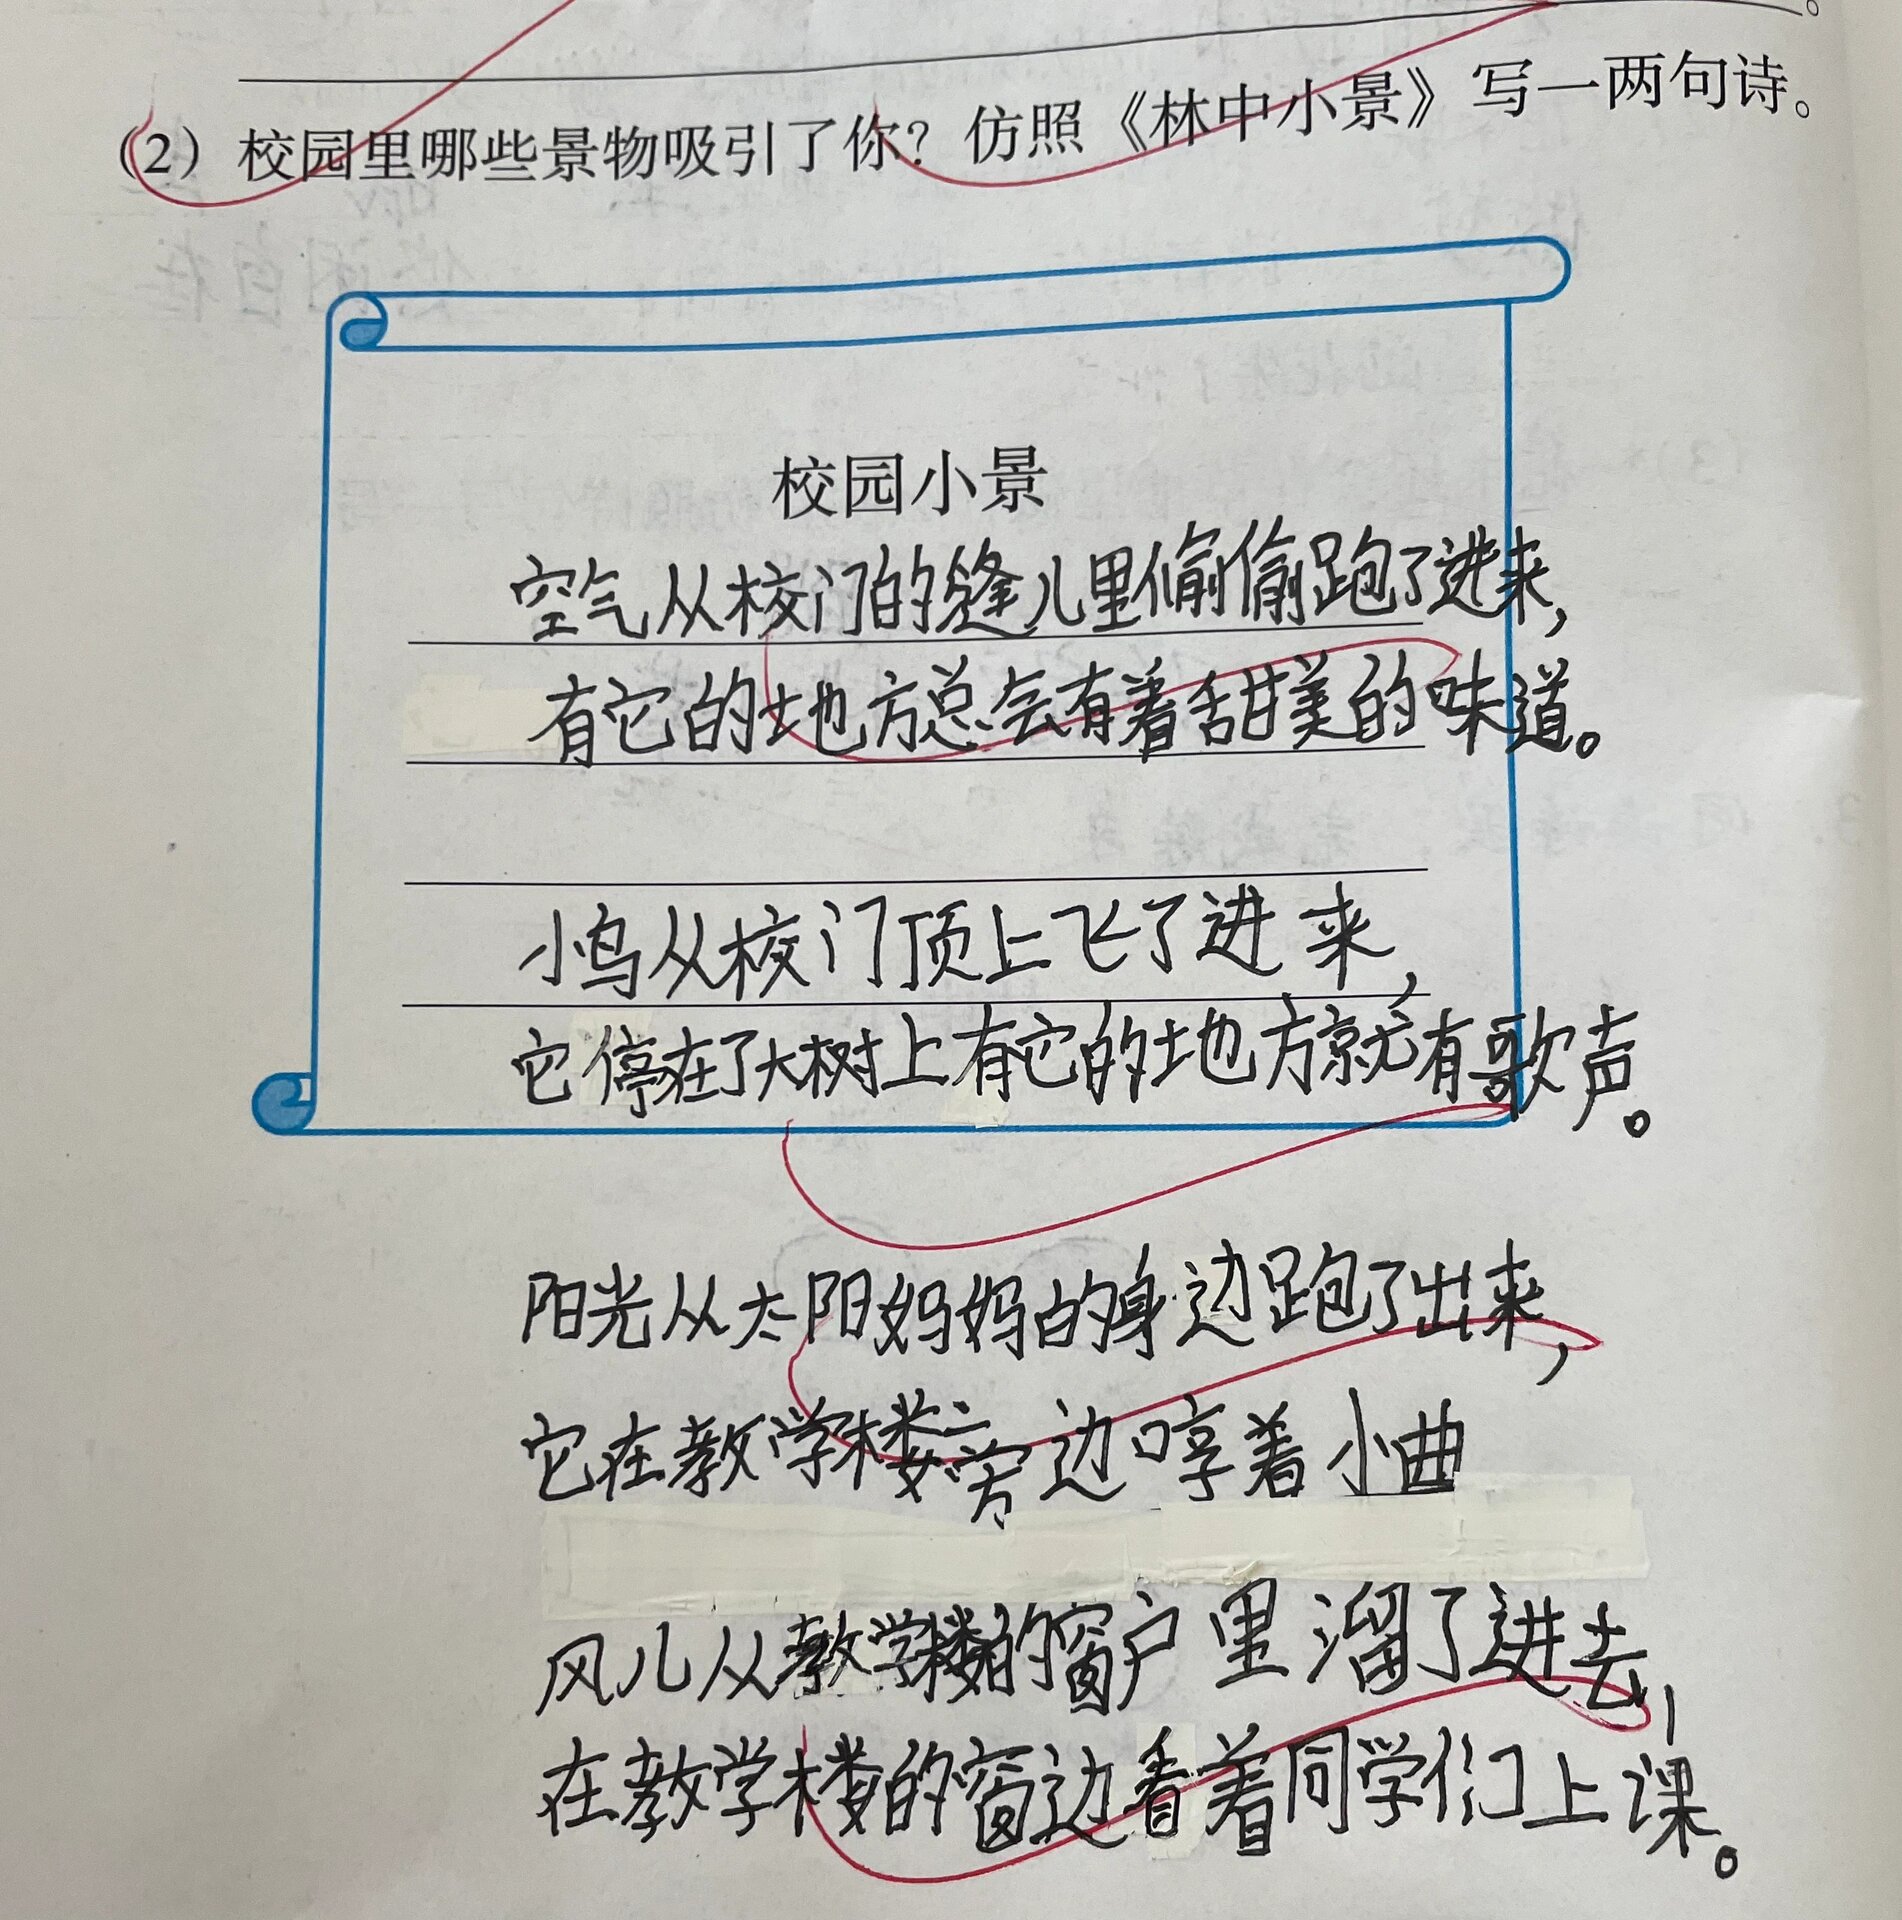 。
（2）校园里哪些景物吸引了你？仿照《林中小景》写一两句诗。
校园小景
空气从校门的缝儿里偷偷跑了进来，
有它的地方总会有着甜美的味道。
小鸟从校门顶上飞了进来，
它停在了大树上有它的地方就有歌声。
阳光从太阳妈妈的身边跑了出来，
它在教学楼旁边哼着小曲
风儿从教学楼的窗户里溜了进去，
在教学楼的窗边看着同学们上课。